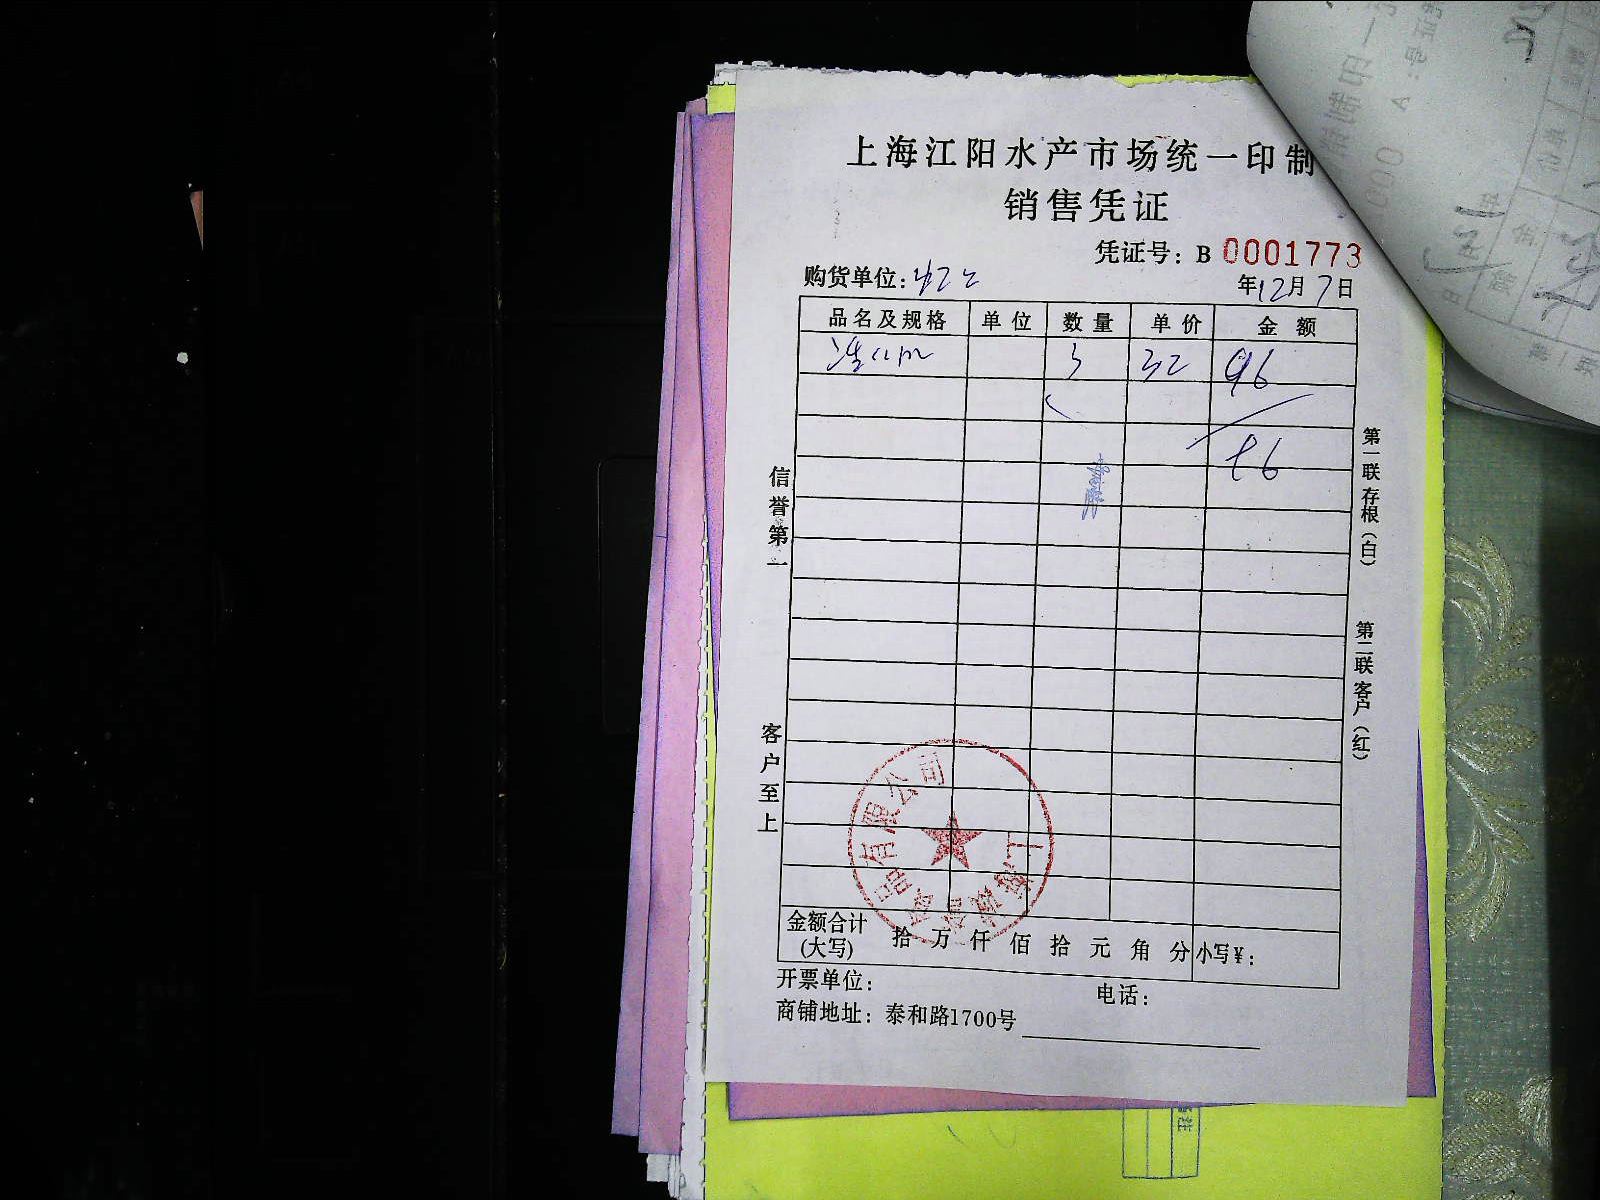 上海江阳水产市场统一印制
销售凭证
凭证号：B 0001773
购货单位：
年12月7日
品名及规格 单位 数量 单价 金额
3 32 96
96
信誉第一
客户至上
第一联存根（白）
第二联客户（红）
有限公司
上海
金额合计（大写） 拾 万 仟 佰 拾 元 角 分 小写¥：
开票单位：
电话：
商铺地址：泰和路1700号